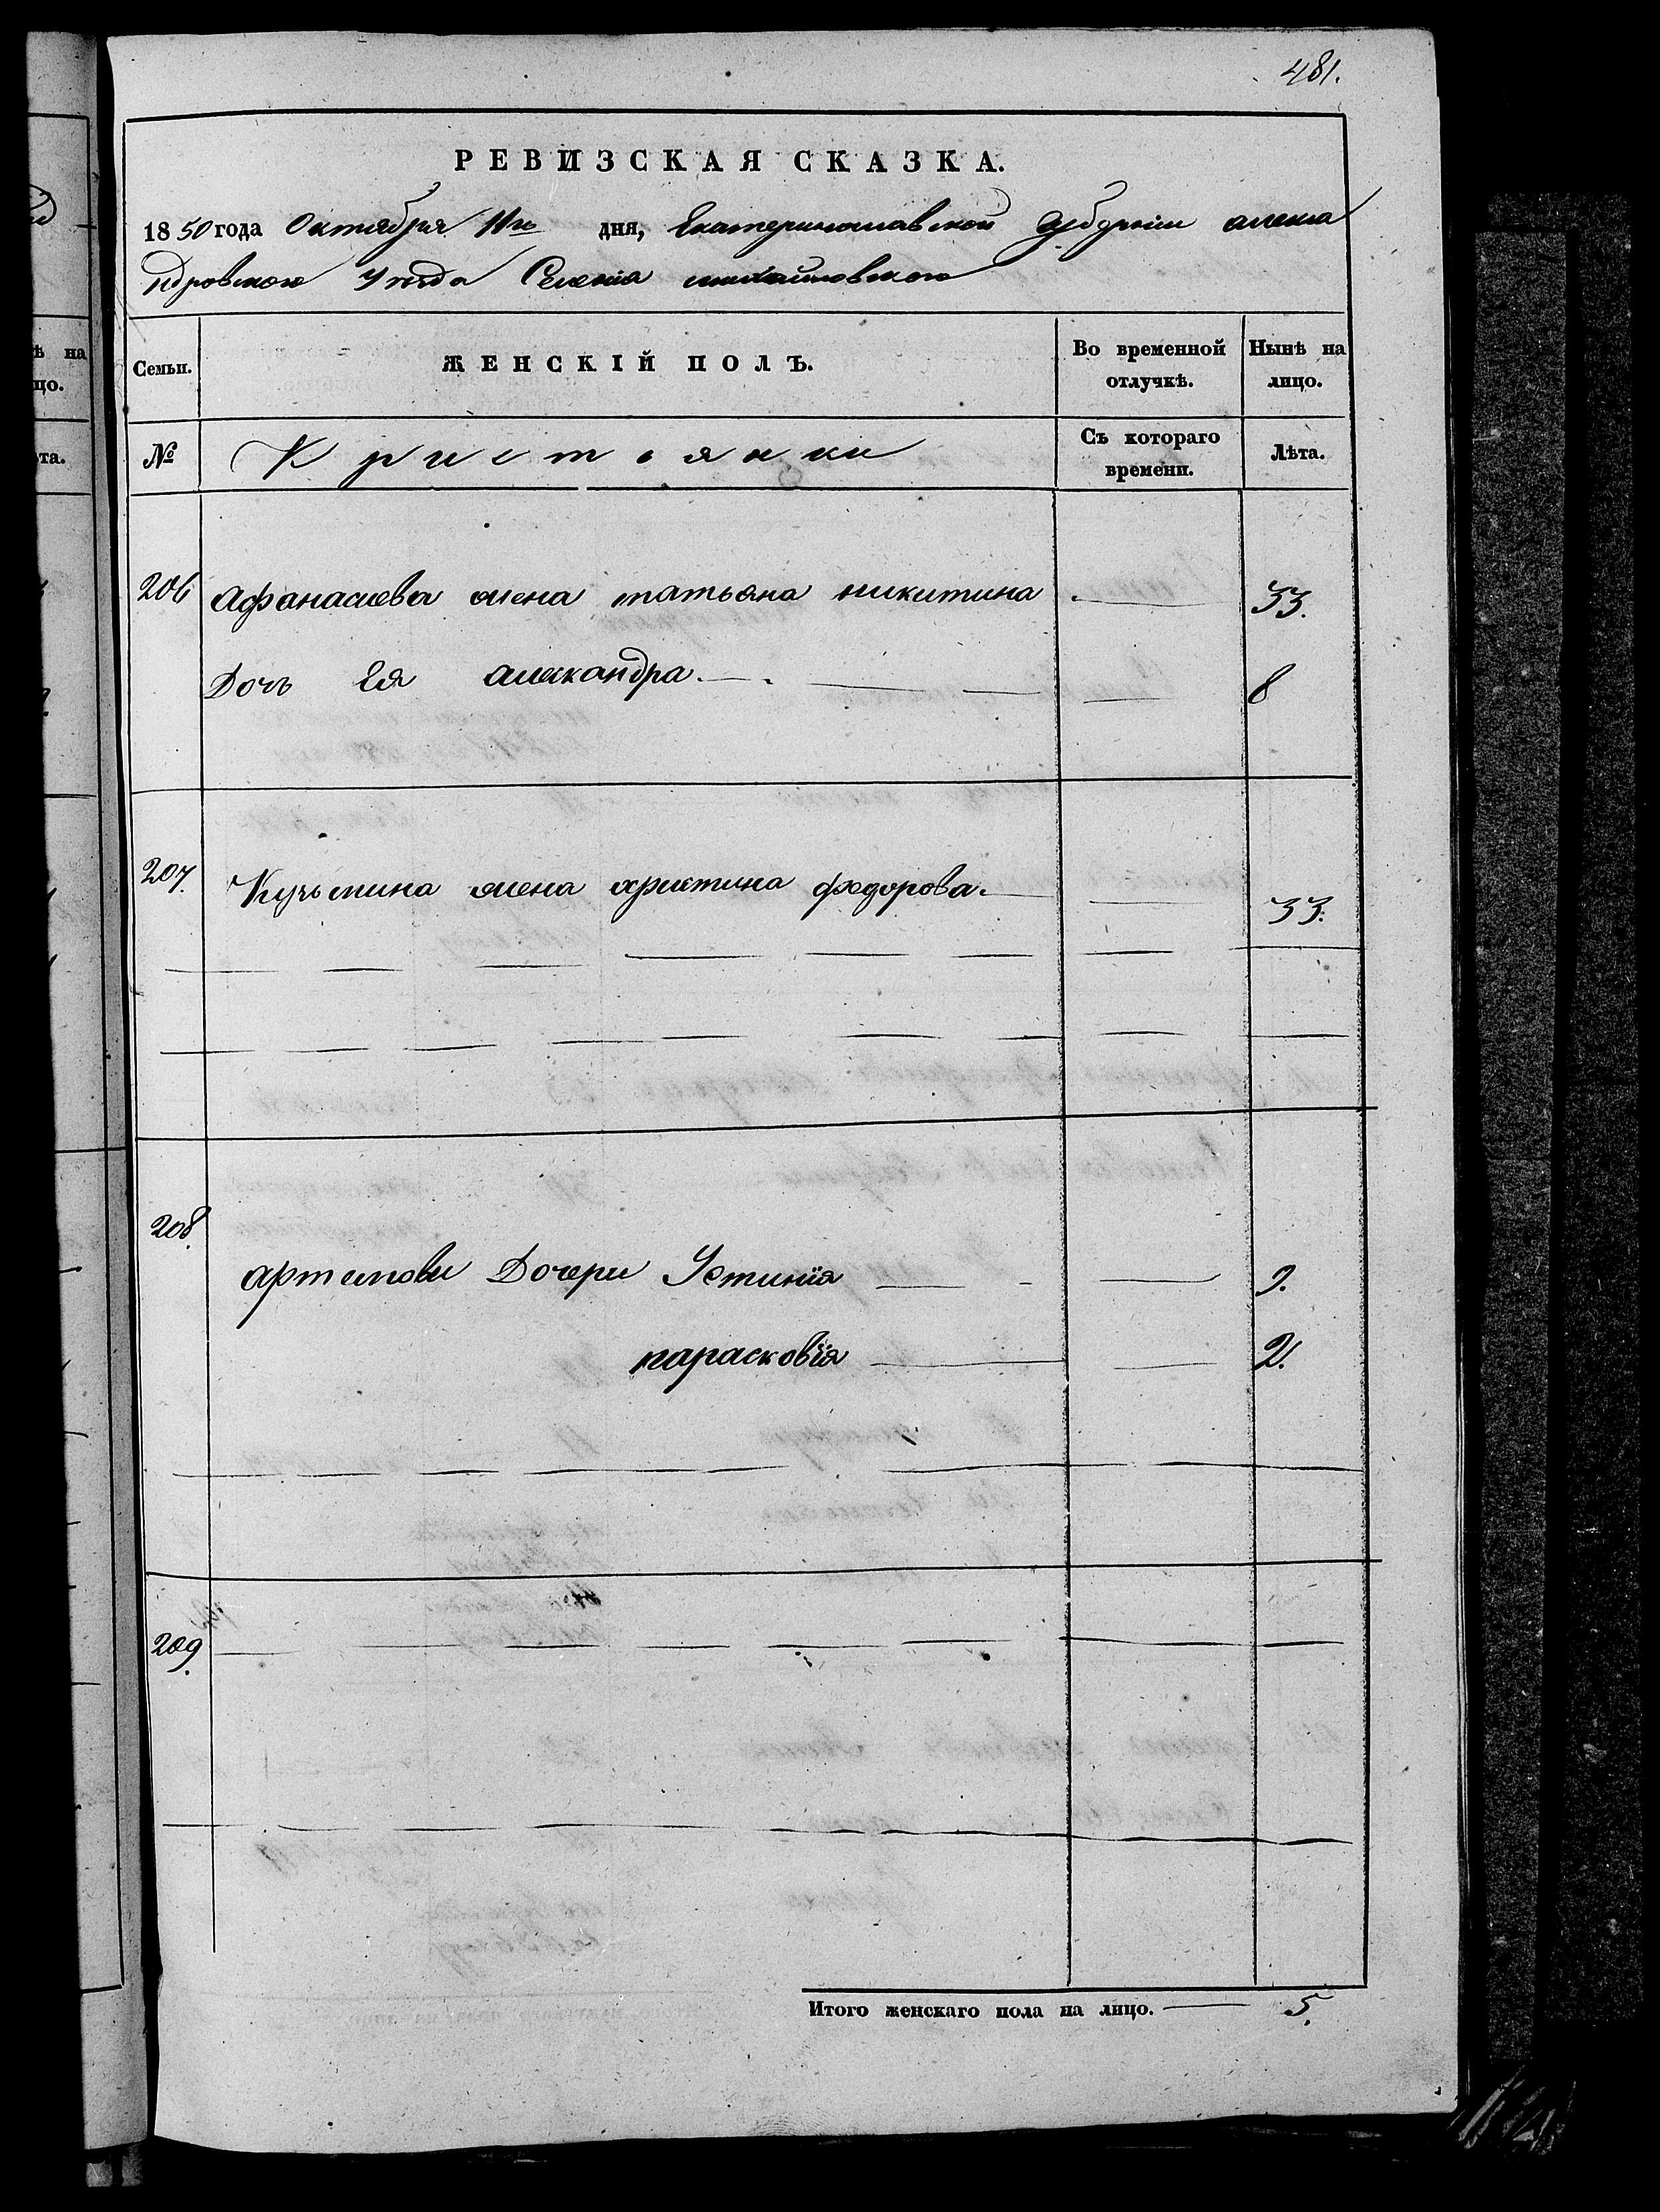 481.
РЕВИЗСКАЯ СКАЗКА.
1850 года Октября 11го дня, Екатеринославской Губернии алекса
ндровского Уезда Селенія михайловского
Семьи. ЖЕНСКІЙ ПОЛЪ. Во временной отлучкѣ. Нынѣ на лицо.
№ Кристьянки Съ котораго времени. Лѣта.
206 Афанасиева жена татьяна никитина 33.
Дочь Ея александра 8
207. Кузьмина жена христина федорова. 33.
208. артемови Дочери Устинїя 9.
парасковїя 2.
209.
Итого женскаго пола на лицо. 5.